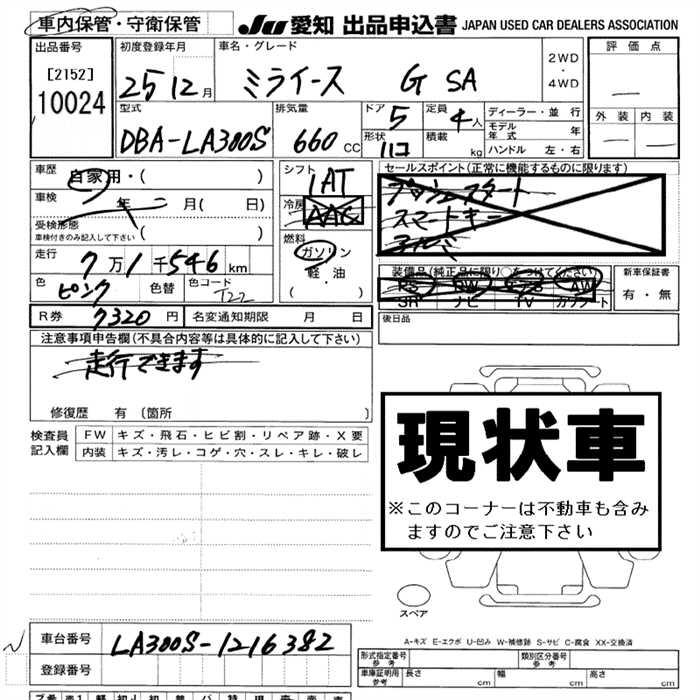 車内保管・守衛保管
JU 愛知 出品申込書 JAPAN USED CAR DEALERS ASSOCIATION
出品番号 初度登録年月 車名・グレード 2WD・4WD 評価点
[2152]
10024 25 12月 ミライース G SA ―
型式 排気量 ドア 5 定員 4人 ディーラー・並行 外装 内装
DBA-LA300S 660cc 形状 積載 kg モデル年式 年 ― ―
ハンドル 左・右
車歴 自家用・( )
シフト IAT
セールスポイント(正常に機能するものに限ります)
車検 年 月( 日)
冷房 AAC
プッシュスタート
スマートキー
アルミ
受検形態
車検付きのみ記入して下さい ( )
燃料 ガソリン
軽・油
( )
走行 7万1千546km
装備品(純正品に限り○をつけてください) 新車保証書
PS PW エアB AW
SR ナビ TV カワシート
有・無
色 ピンク 色替 色コード T22
R券 7320円 名変通知期限 月 日
後日品
注意事項申告欄(不具合内容等は具体的に記入して下さい)
走行できます
修復歴 有 〔箇所 〕
検査員記入欄 FW キズ・飛石・ヒビ割・リペア跡・X要
内装 キズ・汚レ・コゲ・穴・スレ・キレ・破レ
現状車
※このコーナーは不動車も含み
ますのでご注意下さい
スペア
A-キズ E-エクボ U-凹み W-補修跡 S-サビ C-腐食 XX-交換済
車台番号 LA300S-1216382
登録番号
形式指定番号 参考 類別区分番号 参考
車庫証明用 参考 長さ cm 幅 cm 高さ cm